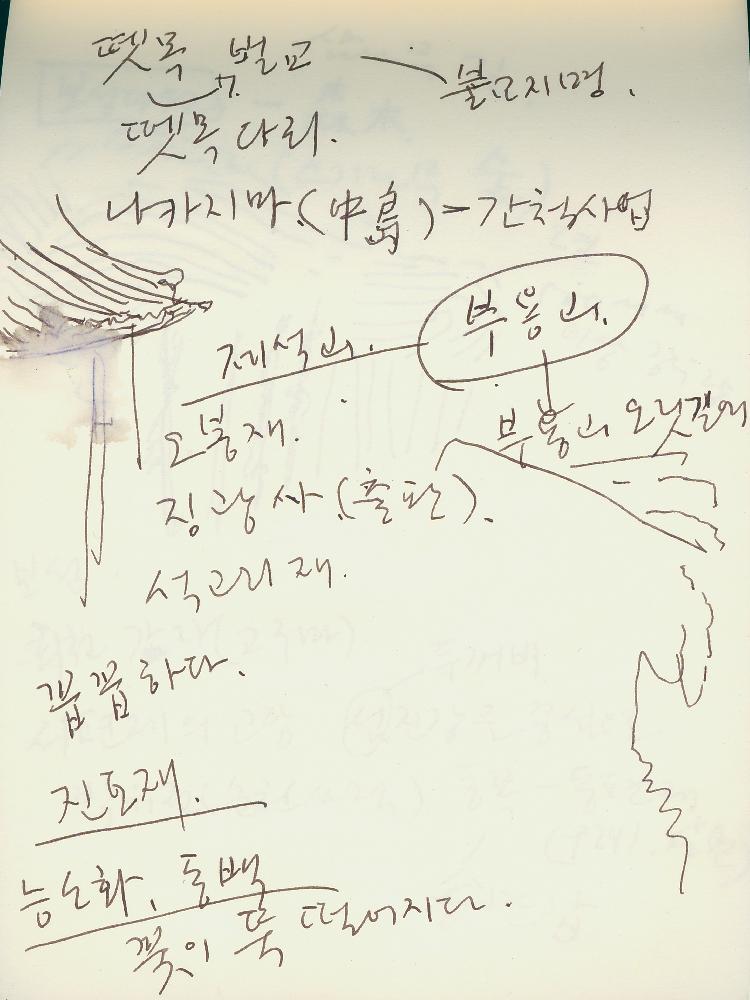 뗏목 벌교 불모지명.
뗏목다리.
나카지마(中島)-간척사업
제석고. 부용교.
오봉재. 부용교 오릿길에
징광사(출판).
석고리재.
꿉꿉하다.
진토재.
능소화, 동백
꽃이 뚝 떨어지다.